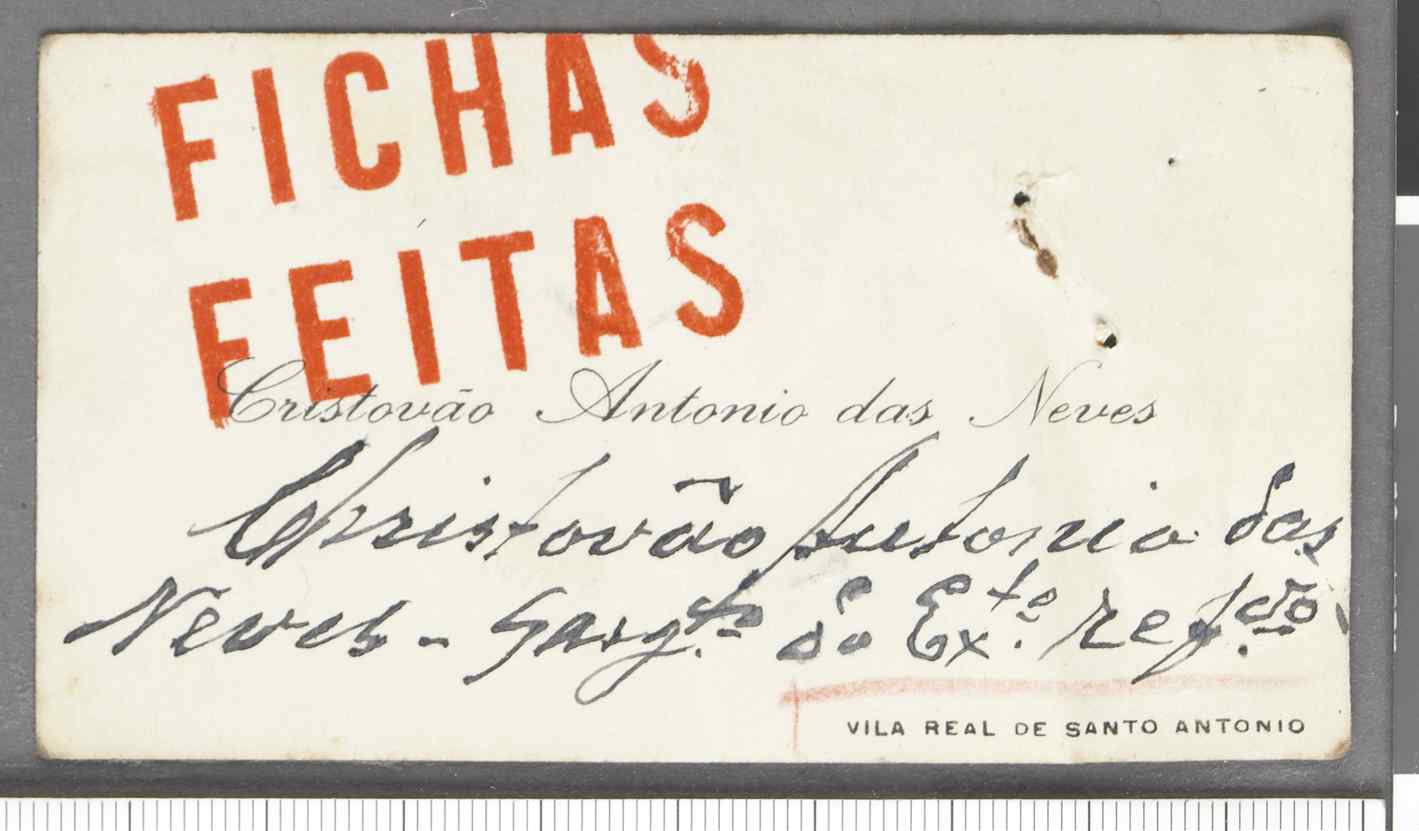 FICHAS
FEITAS
Cristovão Antonio das Neves
Christovão Antonio das
Neves - Sarg.to do Ex.to ref.do
VILA REAL DE SANTO ANTONIO